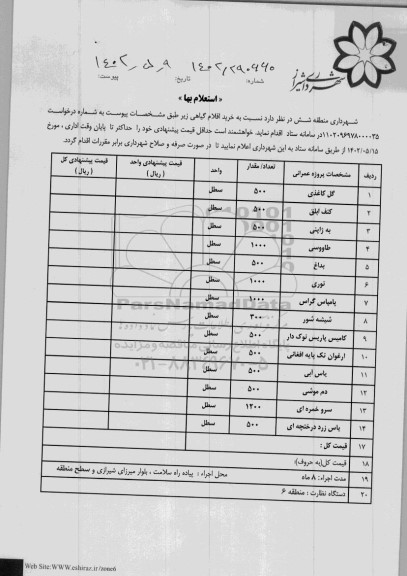 شهرداری شیراز
شماره: ۱۴۰۲/۲۹۰۶۶۰
تاریخ: ۱۴۰۲,۵,۹
پیوست:
« استعلام بها »
شهرداری منطقه شش در نظر دارد نسبت به خرید اقلام گیاهی زیر طبق مشخصات پیوست به شماره درخواست
۱۱۰۲۰۹۶۹۷۸۰۰۰۰۳۵ در سامانه ستاد اقدام نماید. خواهشمند است حداقل قیمت پیشنهادی خود را حداکثر تا پایان وقت اداری ، مورخ
۱۴۰۲/۰۵/۱۵ از طریق سامانه ستاد به این شهرداری اعلام نمایید تا در صورت صرفه و صلاح شهرداری برابر مقررات اقدام گردد.
ردیف مشخصات پروژه عمرانی تعداد/ مقدار واحد قیمت پیشنهادی واحد ( ریال ) قیمت پیشنهادی کل ( ریال )
۱ گل کاغذی ۵۰۰ سطل
۲ کنف ابلق ۵۰۰ سطل
۳ به ژاپنی ۵۰۰ سطل
۴ طاووسی ۱۰۰۰ سطل
۵ بداغ ۵۰۰ سطل
۶ نوری ۱۰۰۰ سطل
۷ پامپاس گراس ۱۰۰۰ سطل
۸ شیشه شور ۳۰۰ سطل
۹ کامیس پاریس نوک دار ۵۰۰ سطل
۱۰ ارغوان تک پایه افغانی ۵۰۰ سطل
۱۱ یاس آبی ۵۰۰ سطل
۱۲ دم موشی ۵۰۰ سطل
۱۳ سرو خمره ای ۱۲۰۰ سطل
۱۴ یاس زرد درختچه ای ۵۰۰ سطل
۱۷ قیمت کل :
۱۸ قیمت کل(به حروف):
۱۹ مدت اجراء: ۸ ماه محل اجراء : پیاده راه سلامت ، بلوار میرزای شیرازی و سطح منطقه
۲۰ دستگاه نظارت : منطقه ۶
ParsNamadData
۰۲۱-۸۸۳۴۹۶۷۰-۵
Web Site:WWW.eshiraz.ir/zone6